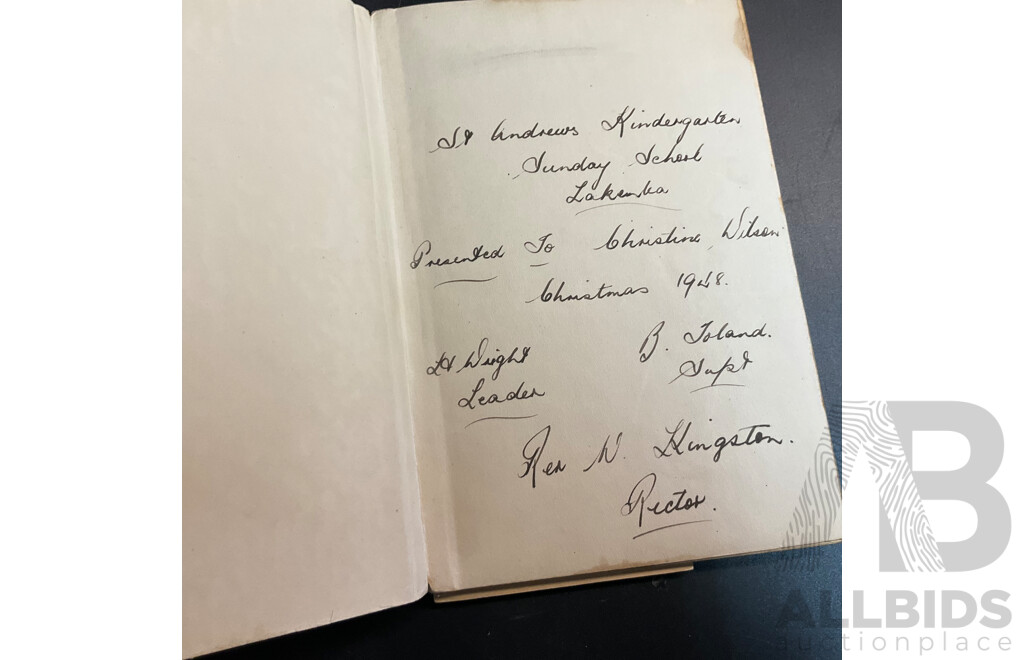 St Andrews Kindergarten
Sunday School
Lakemba
Presented To Christine Wilson
Christmas 1948.
B. Toland.
Supt
Wright
Leader
Rev W. Kingston.
Rector.
AB
ALLBIDS
auctionplace